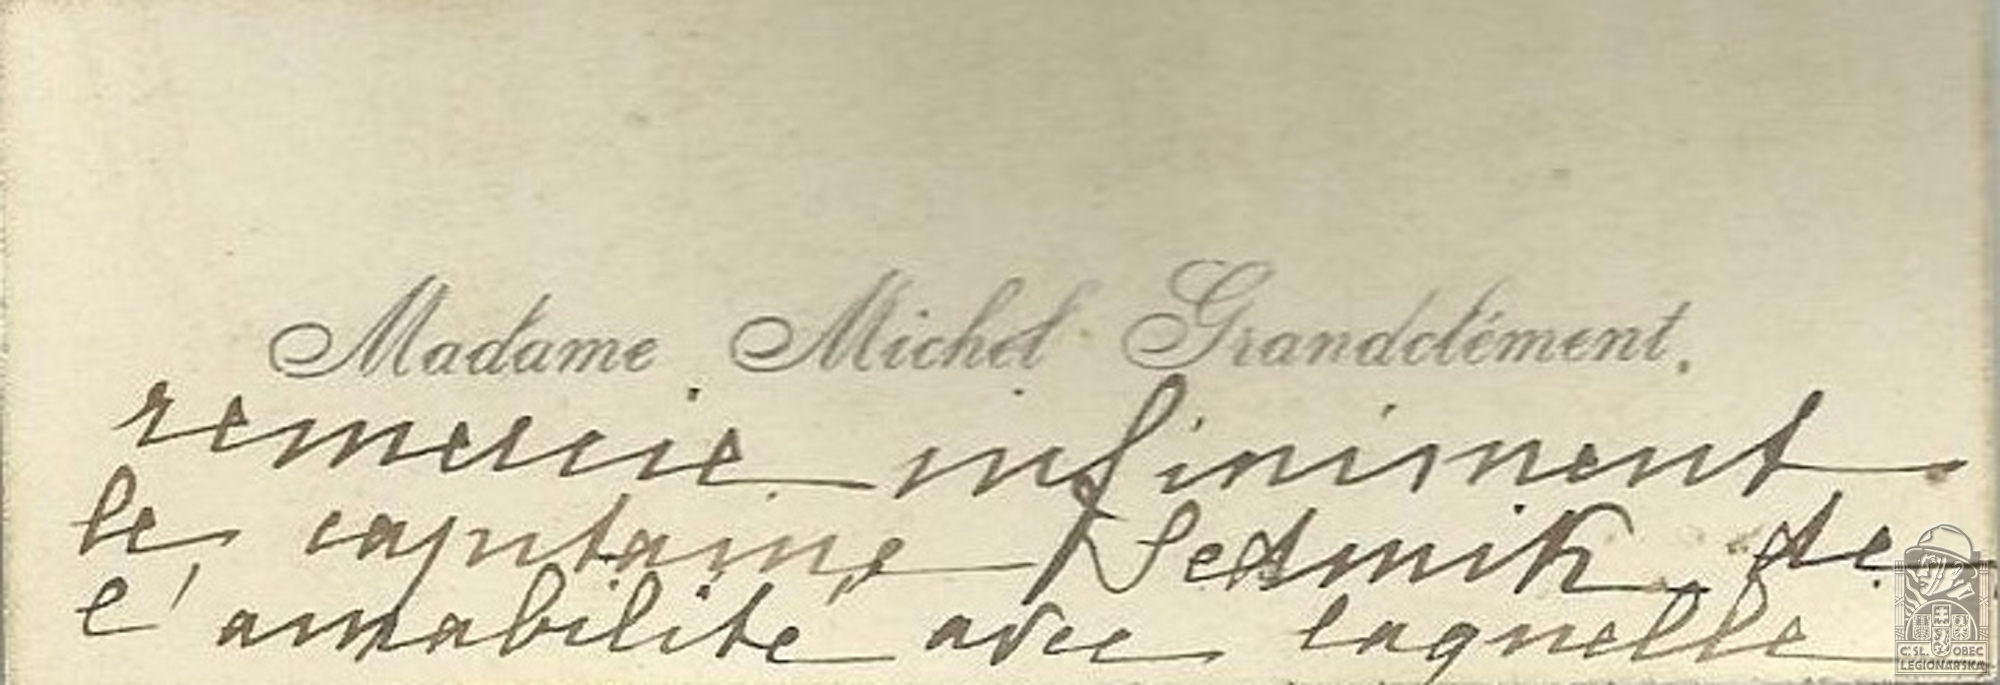 Madame Michel Grandclément.
remercie infiniment
le capitaine Sedmik de
l'amabilité avec laquelle
Č.SL. OBEC
LEGIONÁŘSKÁ